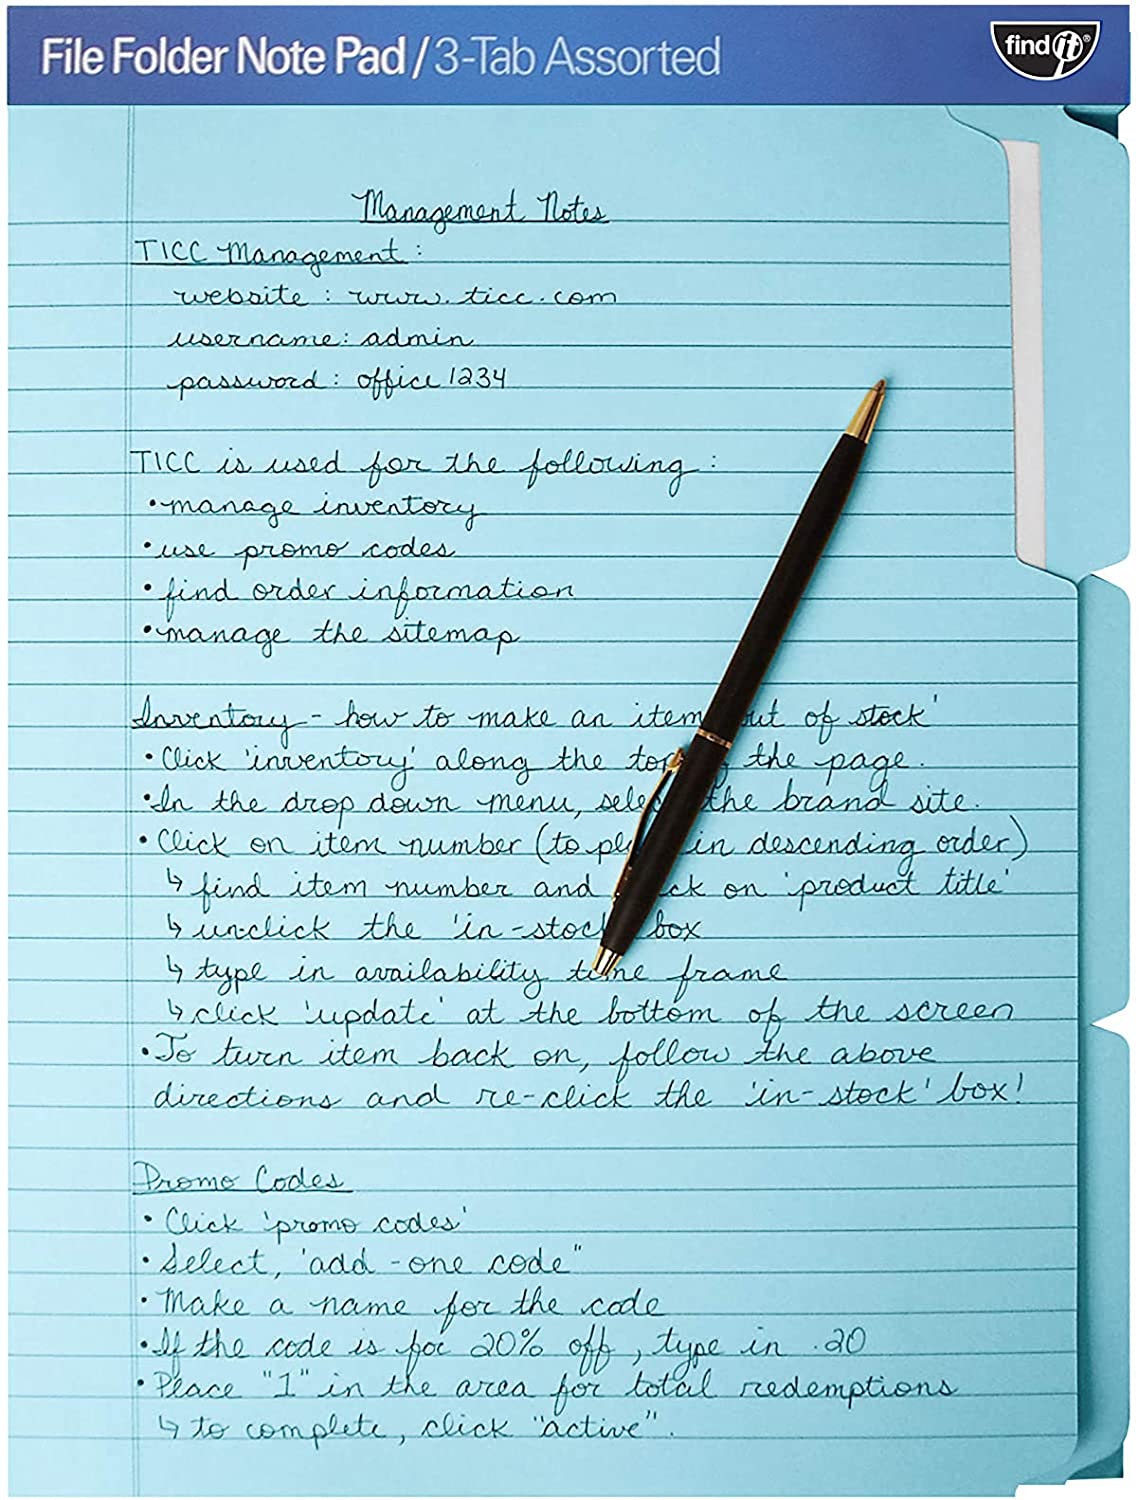 File Folder Note Pad / 3-Tab Assorted
find it®
Management Notes
TICC Management :
website : www.ticc.com
username: admin
password : office 1234
TICC is used for the following :
• manage inventory
• use promo codes
• find order information
• manage the sitemap
Inventory - how to make an item out of stock'
• Click 'inventory' along the top of the page.
• In the drop down menu, select the brand site.
• Click on item number (to in descending order)
↳ find item number and click on 'product title'
↳ unclick the 'in-stock' box
↳ type in availability time frame
↳ click 'update' at the bottom of the screen
• To turn item back on, follow the above
directions and re-click the 'in-stock' box!
Promo Codes
• Click 'promo codes'
• Select, 'add-one code"
• Make a name for the code
• If the code is for 20% off, type in .20
• Place "1" in the area for total redemptions
↳ to complete, click "active".